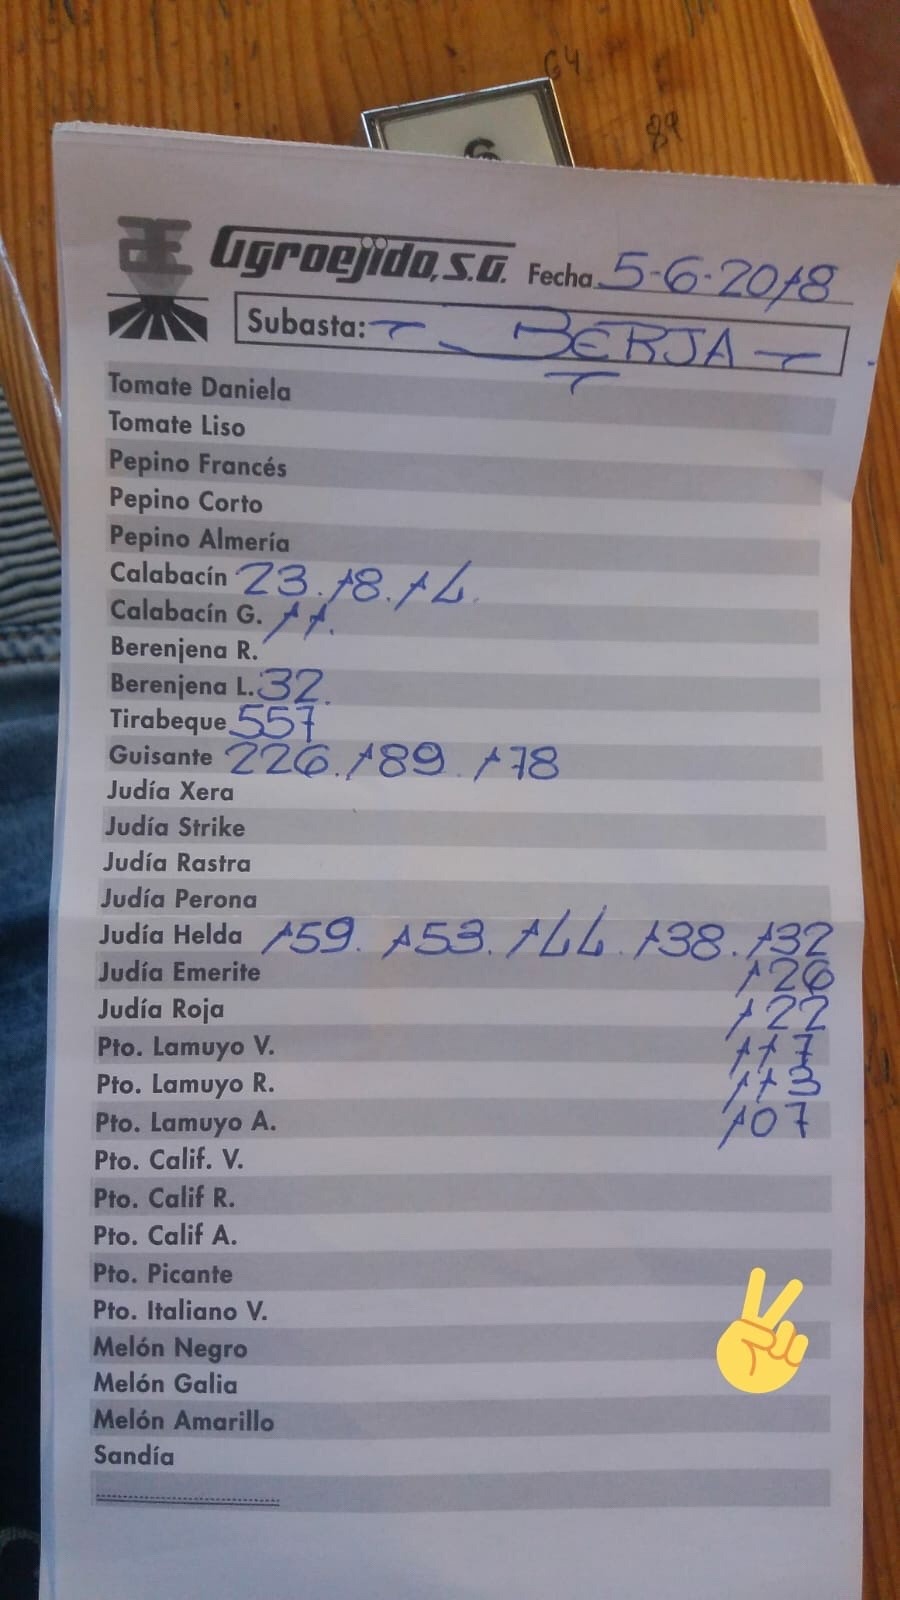 64
89
6
Agroejido, S.A. Fecha 5-6-2018
Subasta: - BERJA -
Tomate Daniela
Tomate Liso
Pepino Francés
Pepino Corto
Pepino Almería
Calabacín 23. 18. 14.
Calabacín G. 11.
Berenjena R.
Berenjena L. 32.
Tirabeque 557
Guisante 226. 189. 178
Judía Xera
Judía Strike
Judía Rastra
Judía Perona
Judía Helda 159. 153. 144. 138. 132
Judía Emerite 126
Judía Roja 122
Pto. Lamuyo V. 117
Pto. Lamuyo R. 113
Pto. Lamuyo A. 107
Pto. Calif. V.
Pto. Calif R.
Pto. Calif A.
Pto. Picante
Pto. Italiano V.
Melón Negro
Melón Galia
Melón Amarillo
Sandía